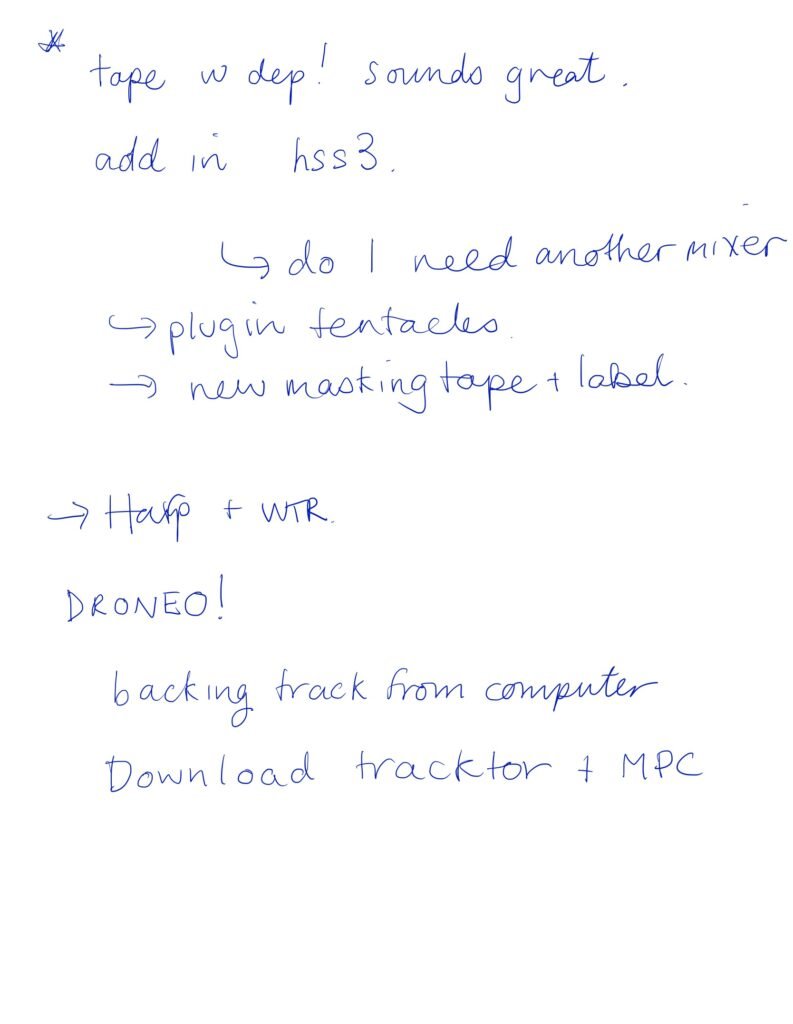 * tape w dep! sounds great.
add in hss3.
↳ do I need another mixer
↳ plugin tentacles.
→ new masking tape + label.
→ Harp + WTR.
DRONEO!
backing track from computer
Download tracktor + MPC